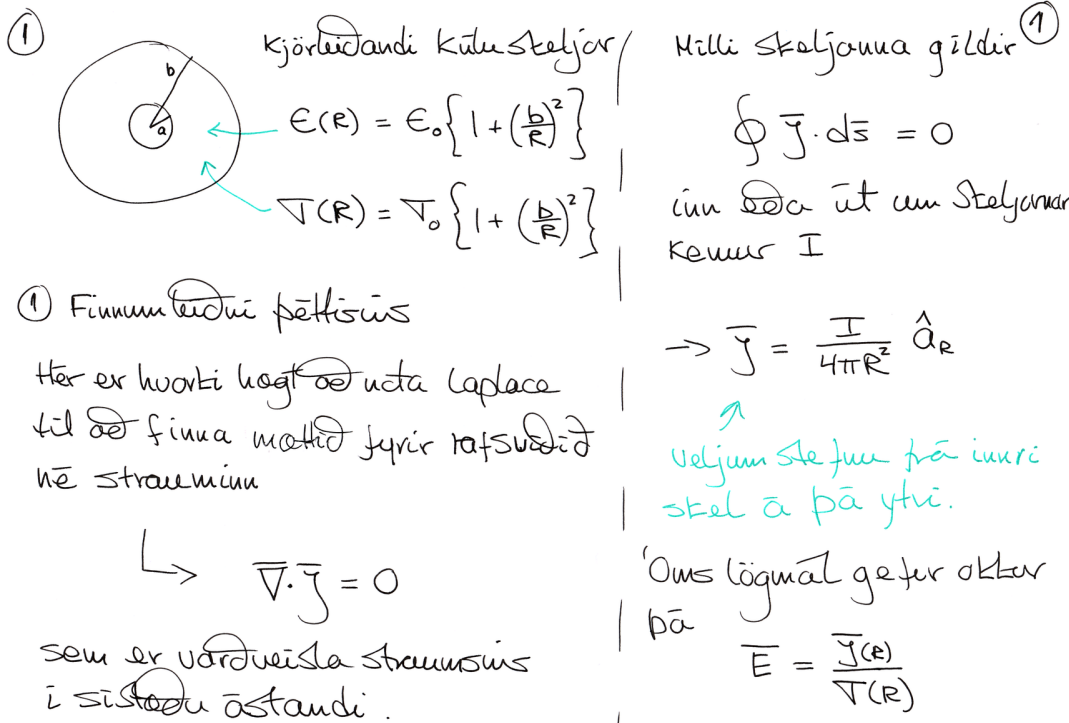 ①
b
a
Kjörleiðandi Kúluskeljar
ϵ(R) = ϵ₀{1 + (b/R)²}
σ(R) = σ₀{1 + (b/R)²}
① Finnum leiðni þéttisins
Hér er hvorki hægt að nota Laplace
til að finna mættið fyrir rafsviðið
né strauminn
↳ ∇̄·J̄ = 0
sem er varðveisla straumsins
í sístæðu ástandi.
①
Milli skeljanna gildir
∮ J̄·ds̄ = 0
inn eða út um Skeljarnar
kemur I
→ J̄ = I/(4πR²) â_R
Veljum stefnu frá innri
skel á þá ytri.
Óms lögmál gefur okkur
þá
Ē = J̄(R)/σ(R)